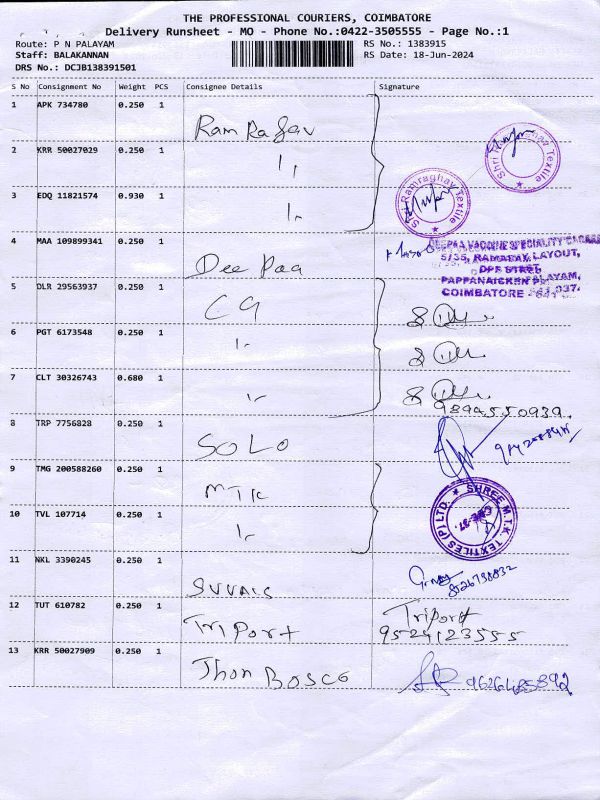 THE PROFESSIONAL COURIERS, COIMBATORE
Delivery Runsheet - MO - Phone No.:0422-3505555 - Page No.:1
Route: P N PALAYAM RS No.: 1383915
Staff: BALAKANNAN RS Date: 18-Jun-2024
DRS No.: DCJB138391501
S No Consignment No Weight PCS Consignee Details Signature
1 APK 734780 0.250 1 Ram Ragav
2 KRR 50027029 0.250 1 "
3 EDQ 11821574 0.930 1 "
Shri Ramraghav Textile
4 MAA 109899341 0.250 1 Dee Paa
DEEPAA VACCINE SPECIALITY
5/35, RAMADAX LAYOUT,
DPF STREET,
PAPPANAICKEN PALAYAM,
COIMBATORE - 641 037.
5 DLR 29563937 0.250 1 C9
6 PGT 6173548 0.250 1 "
7 CLT 30326743 0.680 1 "
8 TRP 7756828 0.250 1 SOLO
9 TMG 200588260 0.250 1 MTK
SHREE M.T.K. TEXTILES (P) LTD.
CBE-37.
10 TVL 107714 0.250 1 "
11 NKL 3390245 0.250 1
12 TUT 610782 0.250 1 Triport Triport
9524123585
13 KRR 50027909 0.250 1 Jhon Bosco